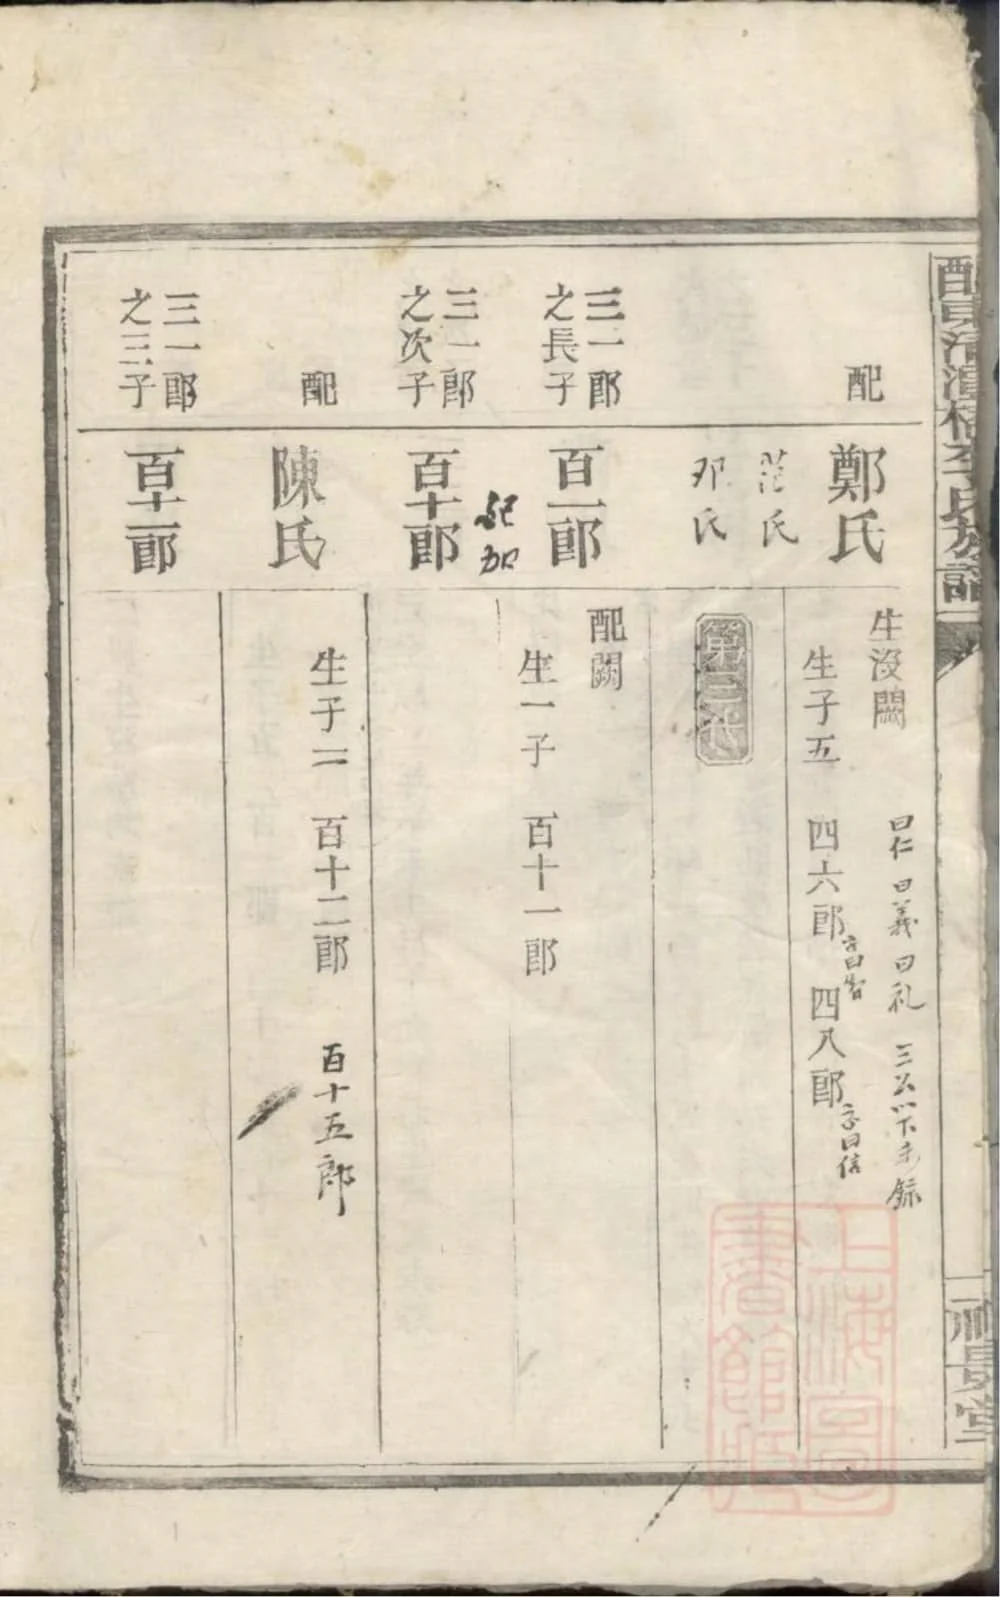 李氏族譜
配
鄭氏
生沒闕
曰仁曰義曰礼 三公以下未錄
生子五 四六郎 字曰智 四八郎 字曰信
范氏
邓氏
第三代
三一郎
之長子
百一郎
配闕
生一子 百十一郎
三一郎
之次子
百十郎
配
陳氏
生子二 百十二郎 百十五郎
三一郎
之三子
百十一郎
上海圖
書館藏